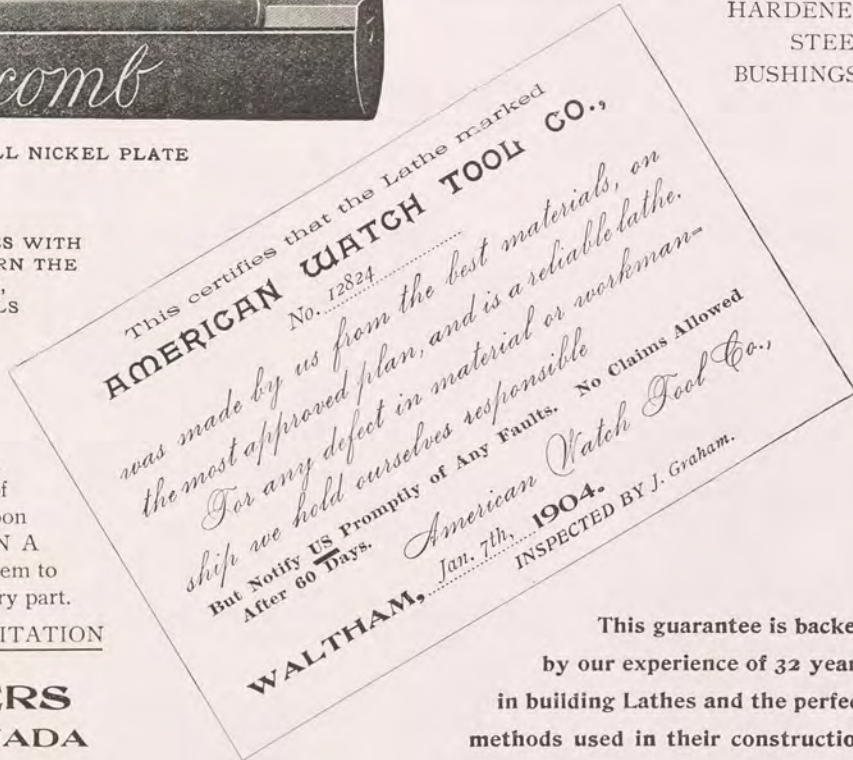 comb
LL NICKEL PLATE
S WITH
RN THE
,
LS
f
on
N A
em to
ry part.
ITATION
ERS
NADA
HARDENE
STEE
BUSHINGS
This certifies that the Lathe marked
AMERICAN WATCH TOOL CO.,
No. 12824
was made by us from the best materials, on
the most approved plan, and is a reliable lathe.
For any defect in material or workman-
ship we hold ourselves responsible
But Notify US Promptly of Any Faults. No Claims Allowed
After 60 Days.
American Watch Tool Co.,
WALTHAM, Jan. 7th, 1904.
INSPECTED BY J. Graham.
This guarantee is backe
by our experience of 32 year
in building Lathes and the perfec
methods used in their constructio